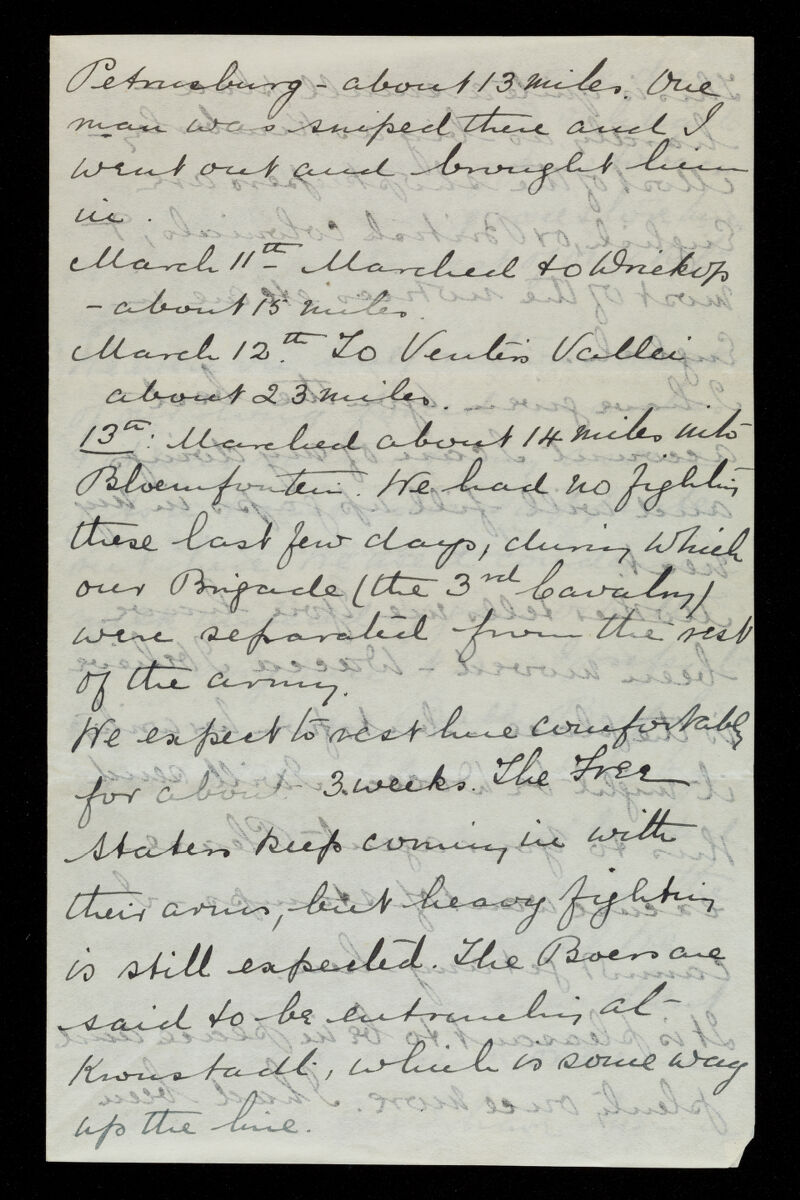 Petrusburg - about 13 miles. One
man was sniped there and I
went out and brought him
in.
March 11th - Marched to Driekop
- about 15 miles.
March 12th. To Venters Vallei
about 23 miles.
13th: Marched about 14 miles into
Bloemfontein. We had no fighting
these last few days, during which
our Brigade (the 3rd Cavalry)
were separated from the rest
of the army.
We expect to rest here comfortably
for about 3 weeks. The Free
staters keep coming in with
their arms, but heavy fighting
is still expected. The Boers are
said to be entrenching at
Kronstadt, which is some way
up the line.